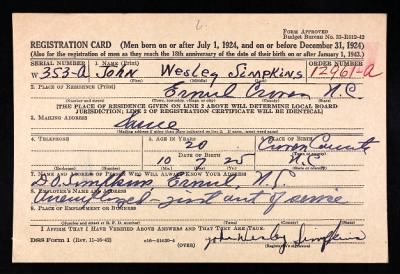 FORM APPROVED
Budget Bureau No. 33-R012-42
REGISTRATION CARD (Men born on or after July 1, 1924, and on or before December 31, 1924)
(Also for the registration of men as they reach the 18th anniversary of the date of their birth on or after January 1, 1943.)
SERIAL NUMBER 1. NAME (Print) ORDER NUMBER
W 353-A John Wesley Simpkins 12961-A
2. PLACE OF RESIDENCE (Print)
Ernul Craven N.C
THE PLACE OF RESIDENCE GIVEN ON LINE 2 ABOVE WILL DETERMINE LOCAL BOARD
JURISDICTION; LINE 2 OF REGISTRATION CERTIFICATE WILL BE IDENTICAL)
3. MAILING ADDRESS
Same
4. TELEPHONE 5. AGE IN YEARS 6. PLACE OF BIRTH
20 Craven County
DATE OF BIRTH
10 7 25 N.C
7. NAME AND ADDRESS OF PERSON WHO WILL ALWAYS KNOW YOUR ADDRESS
D.O. Simpkins Ernul, N.C.
8. EMPLOYER'S NAME AND ADDRESS
Unemployed - just out of service
9. PLACE OF EMPLOYMENT OR BUSINESS
I AFFIRM THAT I HAVE VERIFIED ABOVE ANSWERS AND THAT THEY ARE TRUE.
DSS Form 1 (OVER) John Wesley Simpkins